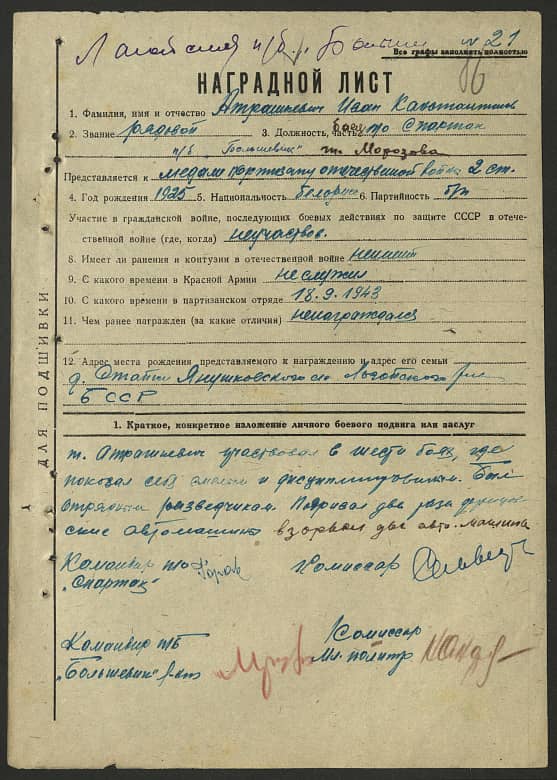 п/б. Больше № 21
Все графы заполнять полностью
86
НАГРАДНОЙ ЛИСТ
1. Фамилия, имя и отчество Атрашкевич Иван
2. Звание рядовой 3. Должность, часть боец п/о Спартак
п/б "Большевик" т. Морозова
Представляется к медали партизану отечествиной война 2 ст.
4. Год рождения 1925 5. Национальность белорус 6. Партийность б/п
Участие в гражданской войне, последующих боевых действиях по защите СССР в отече-
ственной войне (где, когда) неучаствов.
8. Имеет ли ранения и контузии в отечественной войне неимеет
9. С какого времени в Красной Армии не служил
10. С какого времени в партизанском отряде 18.9.1943
11. Чем ранее награжден (за какие отличия) ненаграждался
12. Адрес места рождения представляемого к награждению и адрес его семьи
д. Янушковского с/с Логойского р-на
БССР
1. Краткое, конкретное изложение личного боевого подвига или заслуг
т. Атрашкевич участвовал в шести боях, где
показал себя смелым и дисциплинированым. Был
отрядным разведчикам. два раза
автомашины взорвал две авто. машина
Командир п/о Комиссар
"Спартак"
Командир п/б Комиссар
"Большевик" Мл. политр
ДЛЯ ПОДШИВКИ